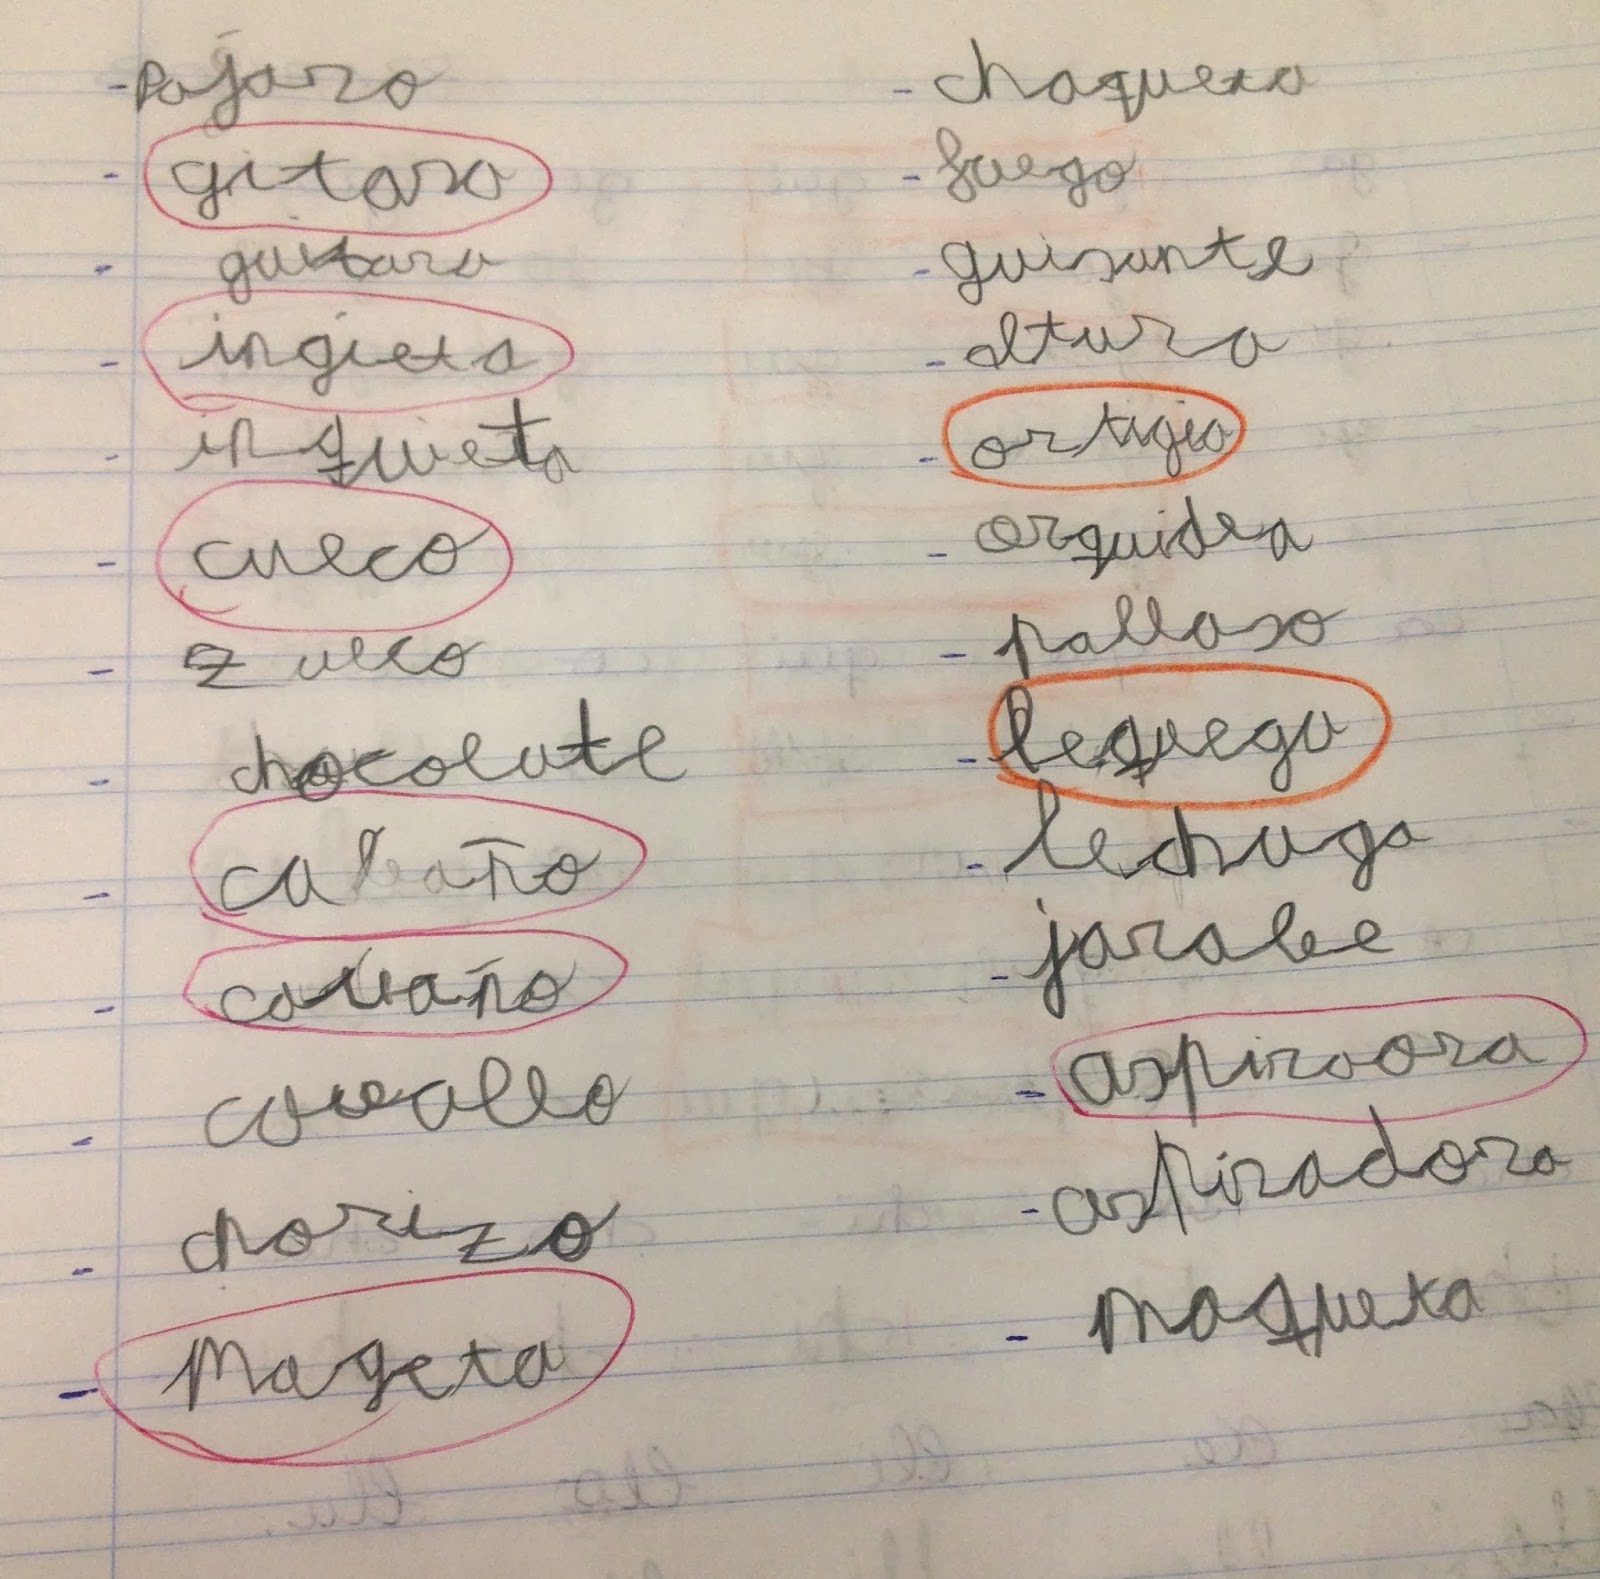 - Pájaro
- gitara
- guitara
- ingieta
- inquieta
- cueco
- zueco
- chocolate
- caleaño
- cavaño
- cavallo
- chorizo
- Mageta
- chaqueta
- fuego
- guisante
- altura
- ortigia
- orquidea
- pallaso
- lequega
- lechuga
- jarabe
- aspiroora
- aspiradora
- Maqueta